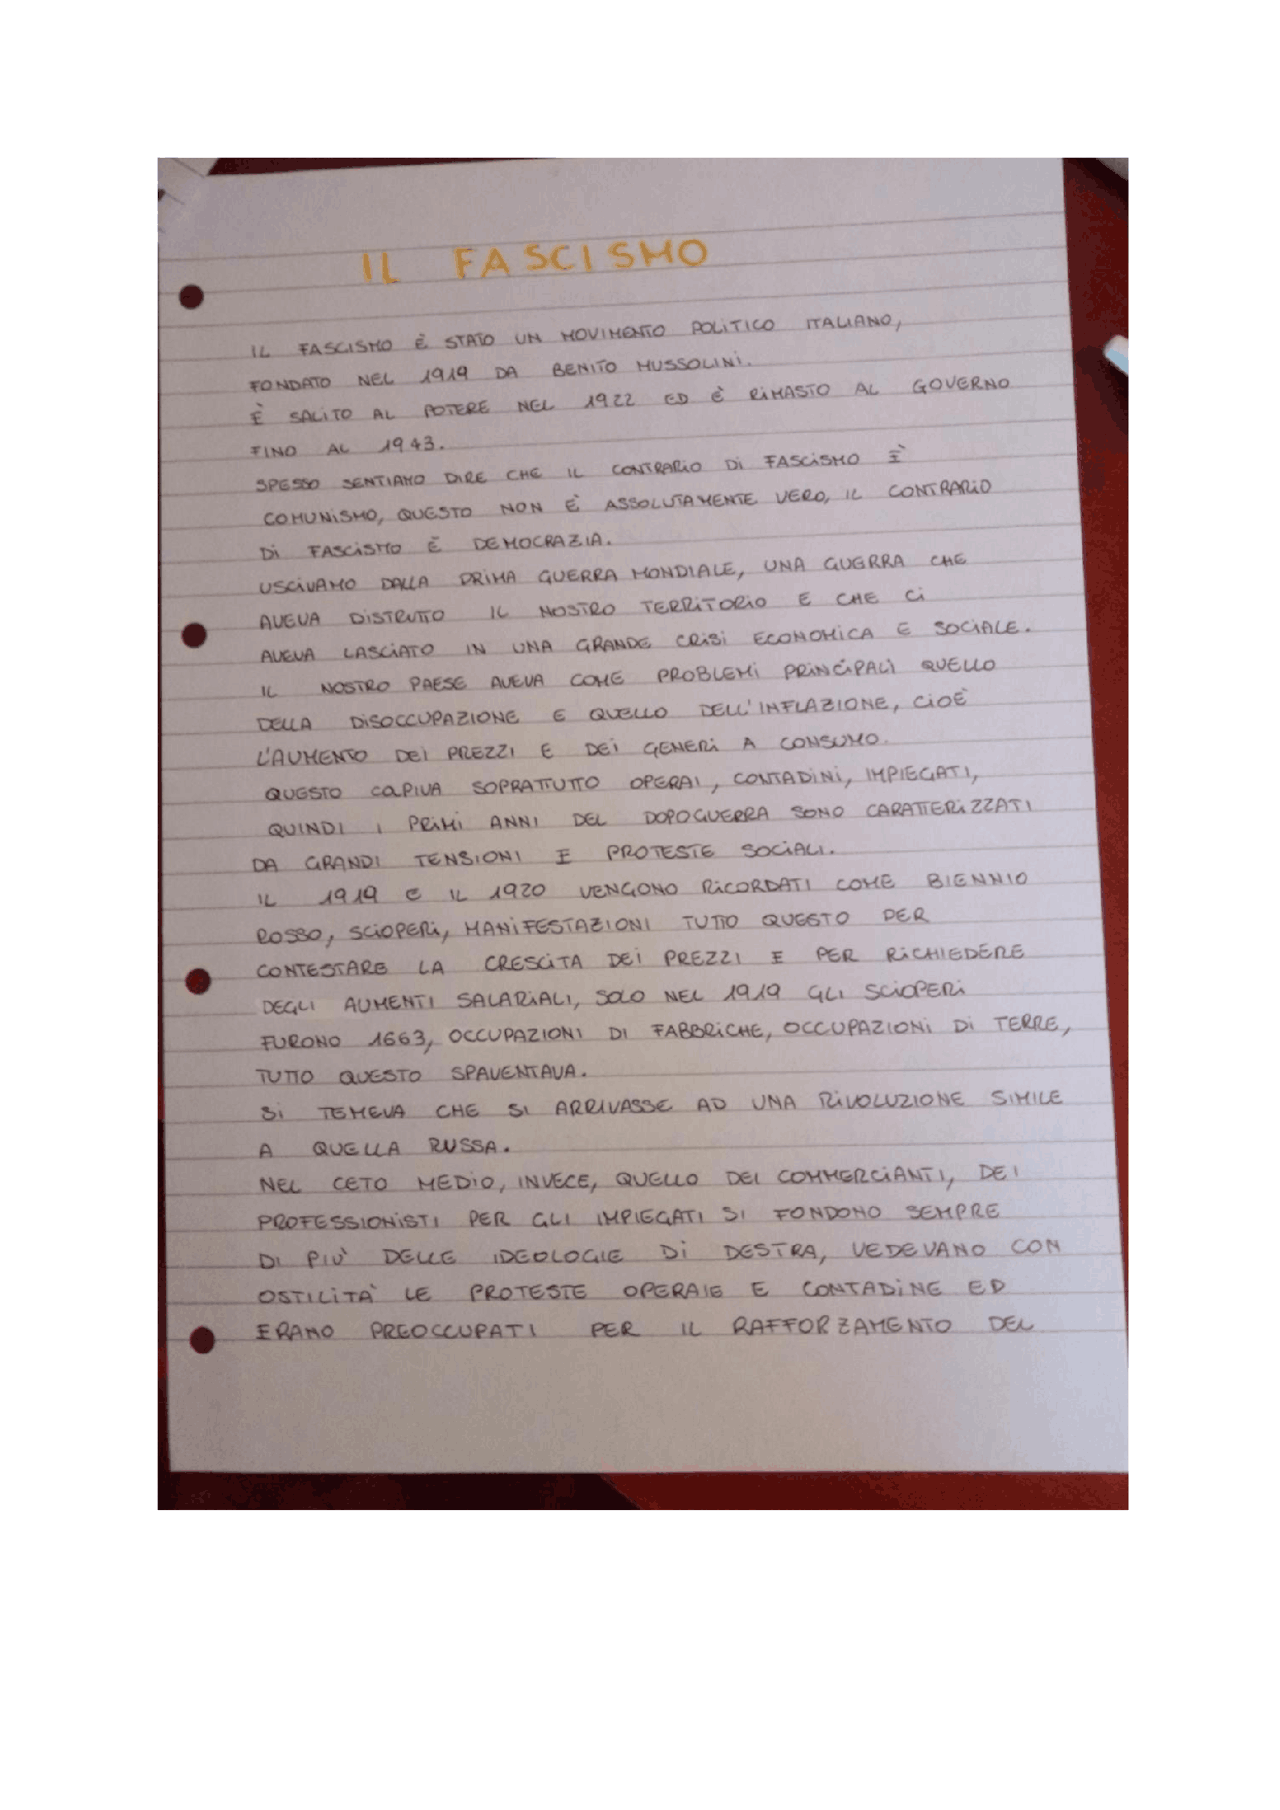 IL FASCISMO
IL FASCISMO È STATO UN MOVIMENTO POLITICO ITALIANO,
FONDATO NEL 1919 DA BENITO MUSSOLINI.
È SALITO AL POTERE NEL 1922 ED È RIMASTO AL GOVERNO
FINO AL 1943.
SPESSO SENTIAMO DIRE CHE IL CONTRARIO DI FASCISMO È
COMUNISMO, QUESTO NON È ASSOLUTAMENTE VERO, IL CONTRARIO
DI FASCISMO È DEMOCRAZIA.
USCIVAMO DALLA PRIMA GUERRA MONDIALE, UNA GUERRA CHE
AVEVA DISTRUTTO IL NOSTRO TERRITORIO E CHE CI
AVEVA LASCIATO IN UNA GRANDE CRISI ECONOMICA E SOCIALE.
IL NOSTRO PAESE AVEVA COME PROBLEMI PRINCIPALI QUELLO
DELLA DISOCCUPAZIONE E QUELLO DELL'INFLAZIONE, CIOÈ
L'AUMENTO DEI PREZZI E DEI GENERI A CONSUMO.
QUESTO COPIVA SOPRATTUTTO OPERAI, CONTADINI, IMPIEGATI,
QUINDI I PRIMI ANNI DEL DOPOGUERRA SONO CARATTERIZZATI
DA GRANDI TENSIONI E PROTESTE SOCIALI.
IL 1919 E IL 1920 VENGONO RICORDATI COME BIENNIO
ROSSO, SCIOPERI, MANIFESTAZIONI TUTTO QUESTO PER
CONTESTARE LA CRESCITA DEI PREZZI E PER RICHIEDERE
DEGLI AUMENTI SALARIALI, SOLO NEL 1919 GLI SCIOPERI
FURONO 1663, OCCUPAZIONI DI FABBRICHE, OCCUPAZIONI DI TERRE,
TUTTO QUESTO SPAVENTAVA.
SI TEMEVA CHE SI ARRIVASSE AD UNA RIVOLUZIONE SIMILE
A QUELLA RUSSA.
NEL CETO MEDIO, INVECE, QUELLO DEI COMMERCIANTI, DEI
PROFESSIONISTI PER GLI IMPIEGATI SI FONDONO SEMPRE
DI PIÙ DELLE IDEOLOGIE DI DESTRA, VEDEVANO CON
OSTILITÀ LE PROTESTE OPERAIE E CONTADINE ED
ERANO PREOCCUPATI PER IL RAFFORZAMENTO DEL